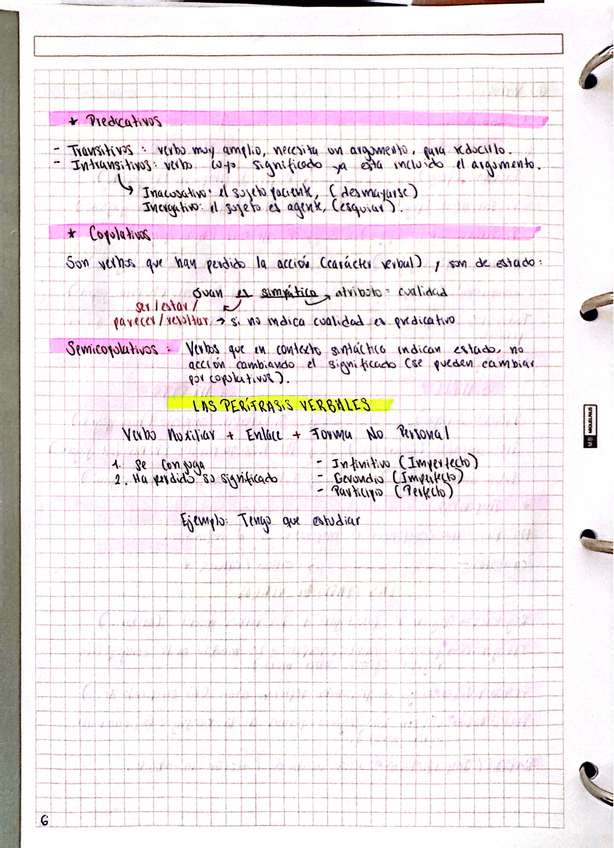 * Predicativos
- Transitivos: verbo muy amplio, necesita un argumento, para reducirlo.
- Intransitivos: verbo cuyo significado ya esta incluido el argumento.
↳ Inacusativo: el sujeto paciente, (desmayarse)
Inergativo: el sujeto es agente, (esquiar).
* Copulativos
Son verbos que han perdido la acción (carácter verbal) y son de estado:
Juan es simpático → atributo = cualidad
ser/estar/
parecer/resultar. → si no indica cualidad es predicativo
Semicopulativos: Verbos que en contexto sintáctico indican estado, no
acción cambiando el significado (se pueden cambiar
por copulativos).
LAS PERÍFRASIS VERBALES
Verbo Auxiliar + Enlace + Forma No Personal
1. Se conjuga
2. Ha perdido su significado
- Infinitivo (Imperfecto)
- Gerundio (Imperfecto)
- Participio (Perfecto)
Ejemplo: Tengo que estudiar
MIQUELRIUS
6